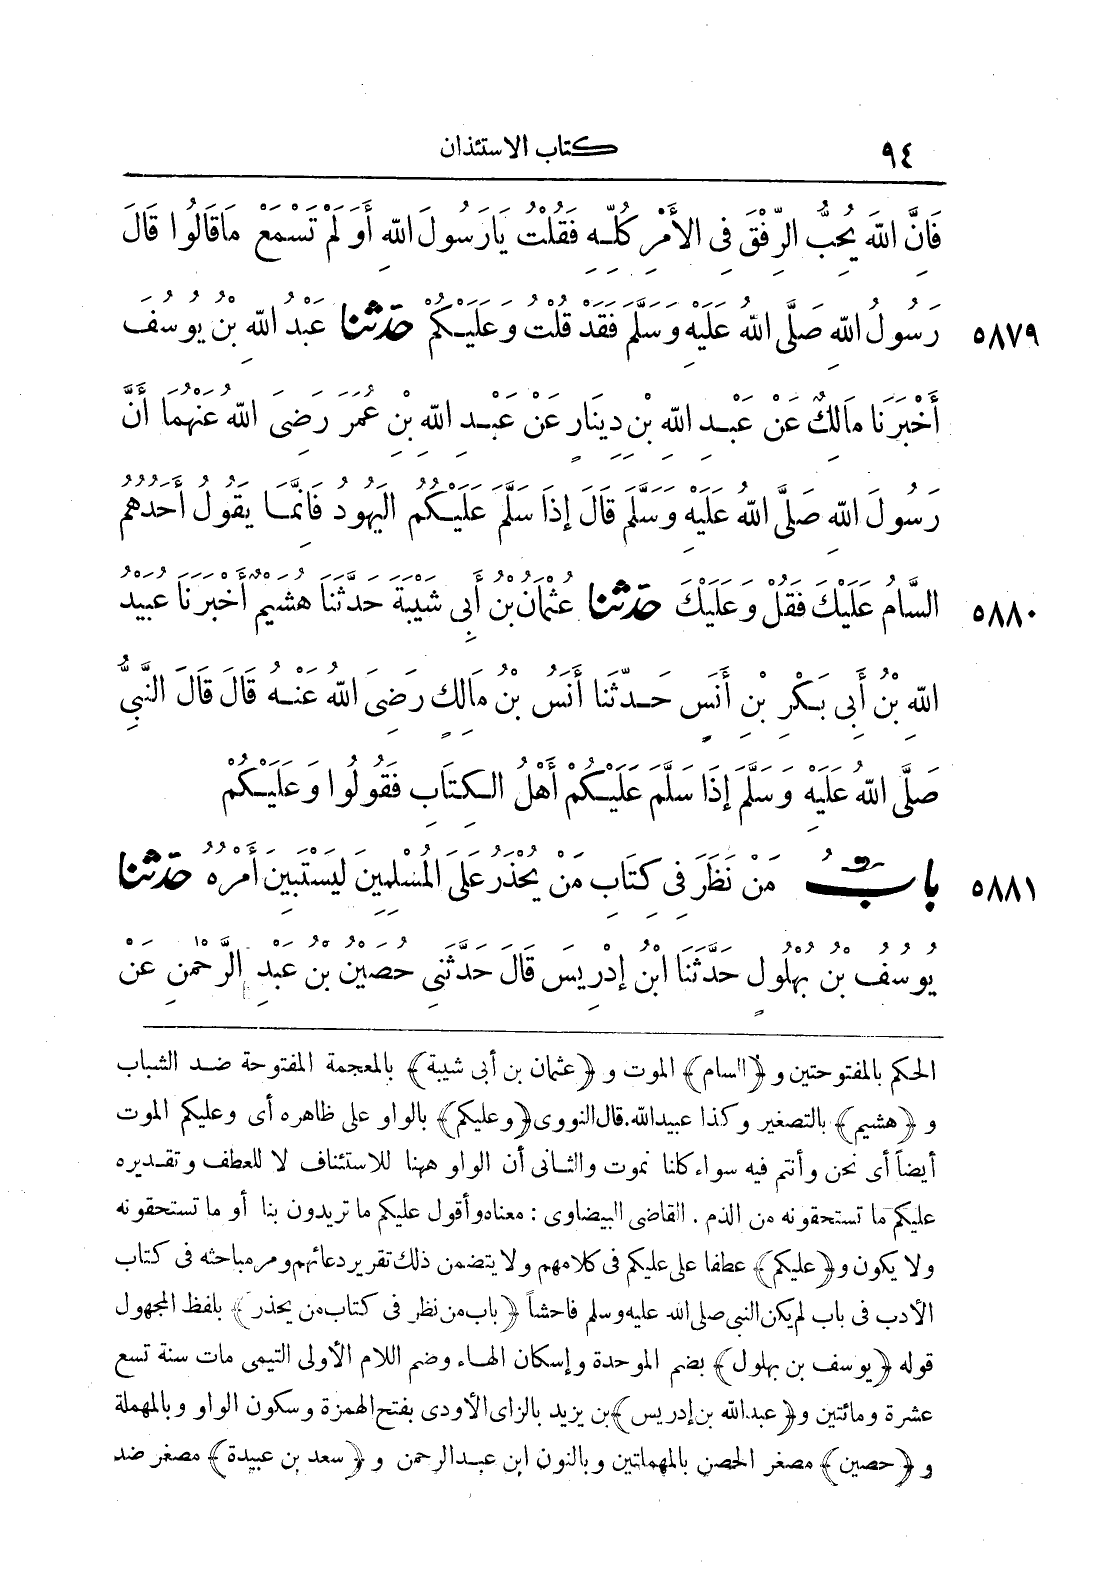 ٩٤ كتاب الاستئذان
فَانَّ اللهَ يُحِبُّ الرِّفْقَ فِى الأَمْرِ كُلِّهِ فَقُلْتُ يَارَسُولَ اللهِ أَوَ لَمْ تَسْمَعْ مَاقَالُوا قَالَ
٥٨٧٩ رَسُولُ اللهِ صَلَّى اللهُ عَلَيْهِ وَسَلَّمَ فَقَدْ قُلْتُ وَعَلَيْكُمْ حَدَّثَنَا عَبْدُ اللهِ بْنُ يُوسُفَ
أَخْبَرَنَا مَالِكٌ عَنْ عَبْدِ اللهِ بْنِ دِينَارٍ عَنْ عَبْدِ اللهِ بْنِ عُمَرَ رَضِىَ اللهُ عَنْهُمَا أَنَّ
رَسُولَ اللهِ صَلَّى اللهُ عَلَيْهِ وَسَلَّمَ قَالَ إِذَا سَلَّمَ عَلَيْكُمُ الْيَهُودُ فَانَّمَا يَقُولُ أَحَدُهُمُ
٥٨٨٠ السَّامُ عَلَيْكَ فَقُلْ وَعَلَيْكَ حَدَّثَنَا عُثْمَانُ بْنُ أَبِى شَيْبَةَ حَدَّثَنَا هُشَيْمٌ أَخْبَرَنَا عُبَيْدُ
اللهِ بْنُ أَبِى بَكْرِ بْنِ أَنَسٍ حَدَّثَنَا أَنَسُ بْنُ مَالِكٍ رَضِىَ اللهُ عَنْهُ قَالَ قَالَ النَّبِىُّ
صَلَّى اللهُ عَلَيْهِ وَسَلَّمَ إِذَا سَلَّمَ عَلَيْكُمْ أَهْلُ الْكِتَابِ فَقُولُوا وَعَلَيْكُمْ
٥٨٨١ بابُ مَنْ نَظَرَ فِى كِتَابِ مَنْ يُحْذَرُ عَلَى الْمُسْلِمِينَ لِيَسْتَبِينَ أَمْرُهُ حَدَّثَنَا
يُوسُفُ بْنُ بُهْلُولٍ حَدَّثَنَا ابْنُ إِدْرِيسَ قَالَ حَدَّثَنِى حُصَيْنُ بْنُ عَبْدِ الرَّحْمٰنِ عَنْ
الحكم بالمفتوحتين و﴿السام﴾ الموت و﴿عثمان بن أبى شيبة﴾ بالمعجمة المفتوحة ضد الشباب
و﴿هشيم﴾ بالتصغير وكذا عبيدالله. قال النووى ﴿وعليكم﴾ بالواو على ظاهره أى وعليكم الموت
أيضاً أى نحن وأنتم فيه سواء كلنا نموت والثانى أن الواو ههنا للاستئناف لا للعطف وتقديره
عليكم ما تستحقونه من الذم. القاضى البيضاوى: معناه وأقول عليكم ما تريدون بنا أو ما تستحقونه
ولا يكون و﴿عليكم﴾ عطفا على عليكم فى كلامهم ولا يتضمن ذلك تقرير دعائهم ومر مباحثه فى كتاب
الأدب فى باب لم يكن النبى صلى الله عليه وسلم فاحشاً ﴿باب من نظر فى كتاب من يحذر﴾ بلفظ المجهول
قوله ﴿يوسف بن بهلول﴾ بضم الموحدة وإسكان الهاء وضم اللام الأولى التيمى مات سنة تسع
عشرة ومائتين و﴿عبد الله بن إدريس﴾ بن يزيد بالزاى الأودى بفتح الهمزة وسكون الواو وبالمهملة
و﴿حصين﴾ مصغر الحصن بالمهملتين وبالنون ابن عبد الرحمن و﴿سعد بن عبيدة﴾ مصغر ضد